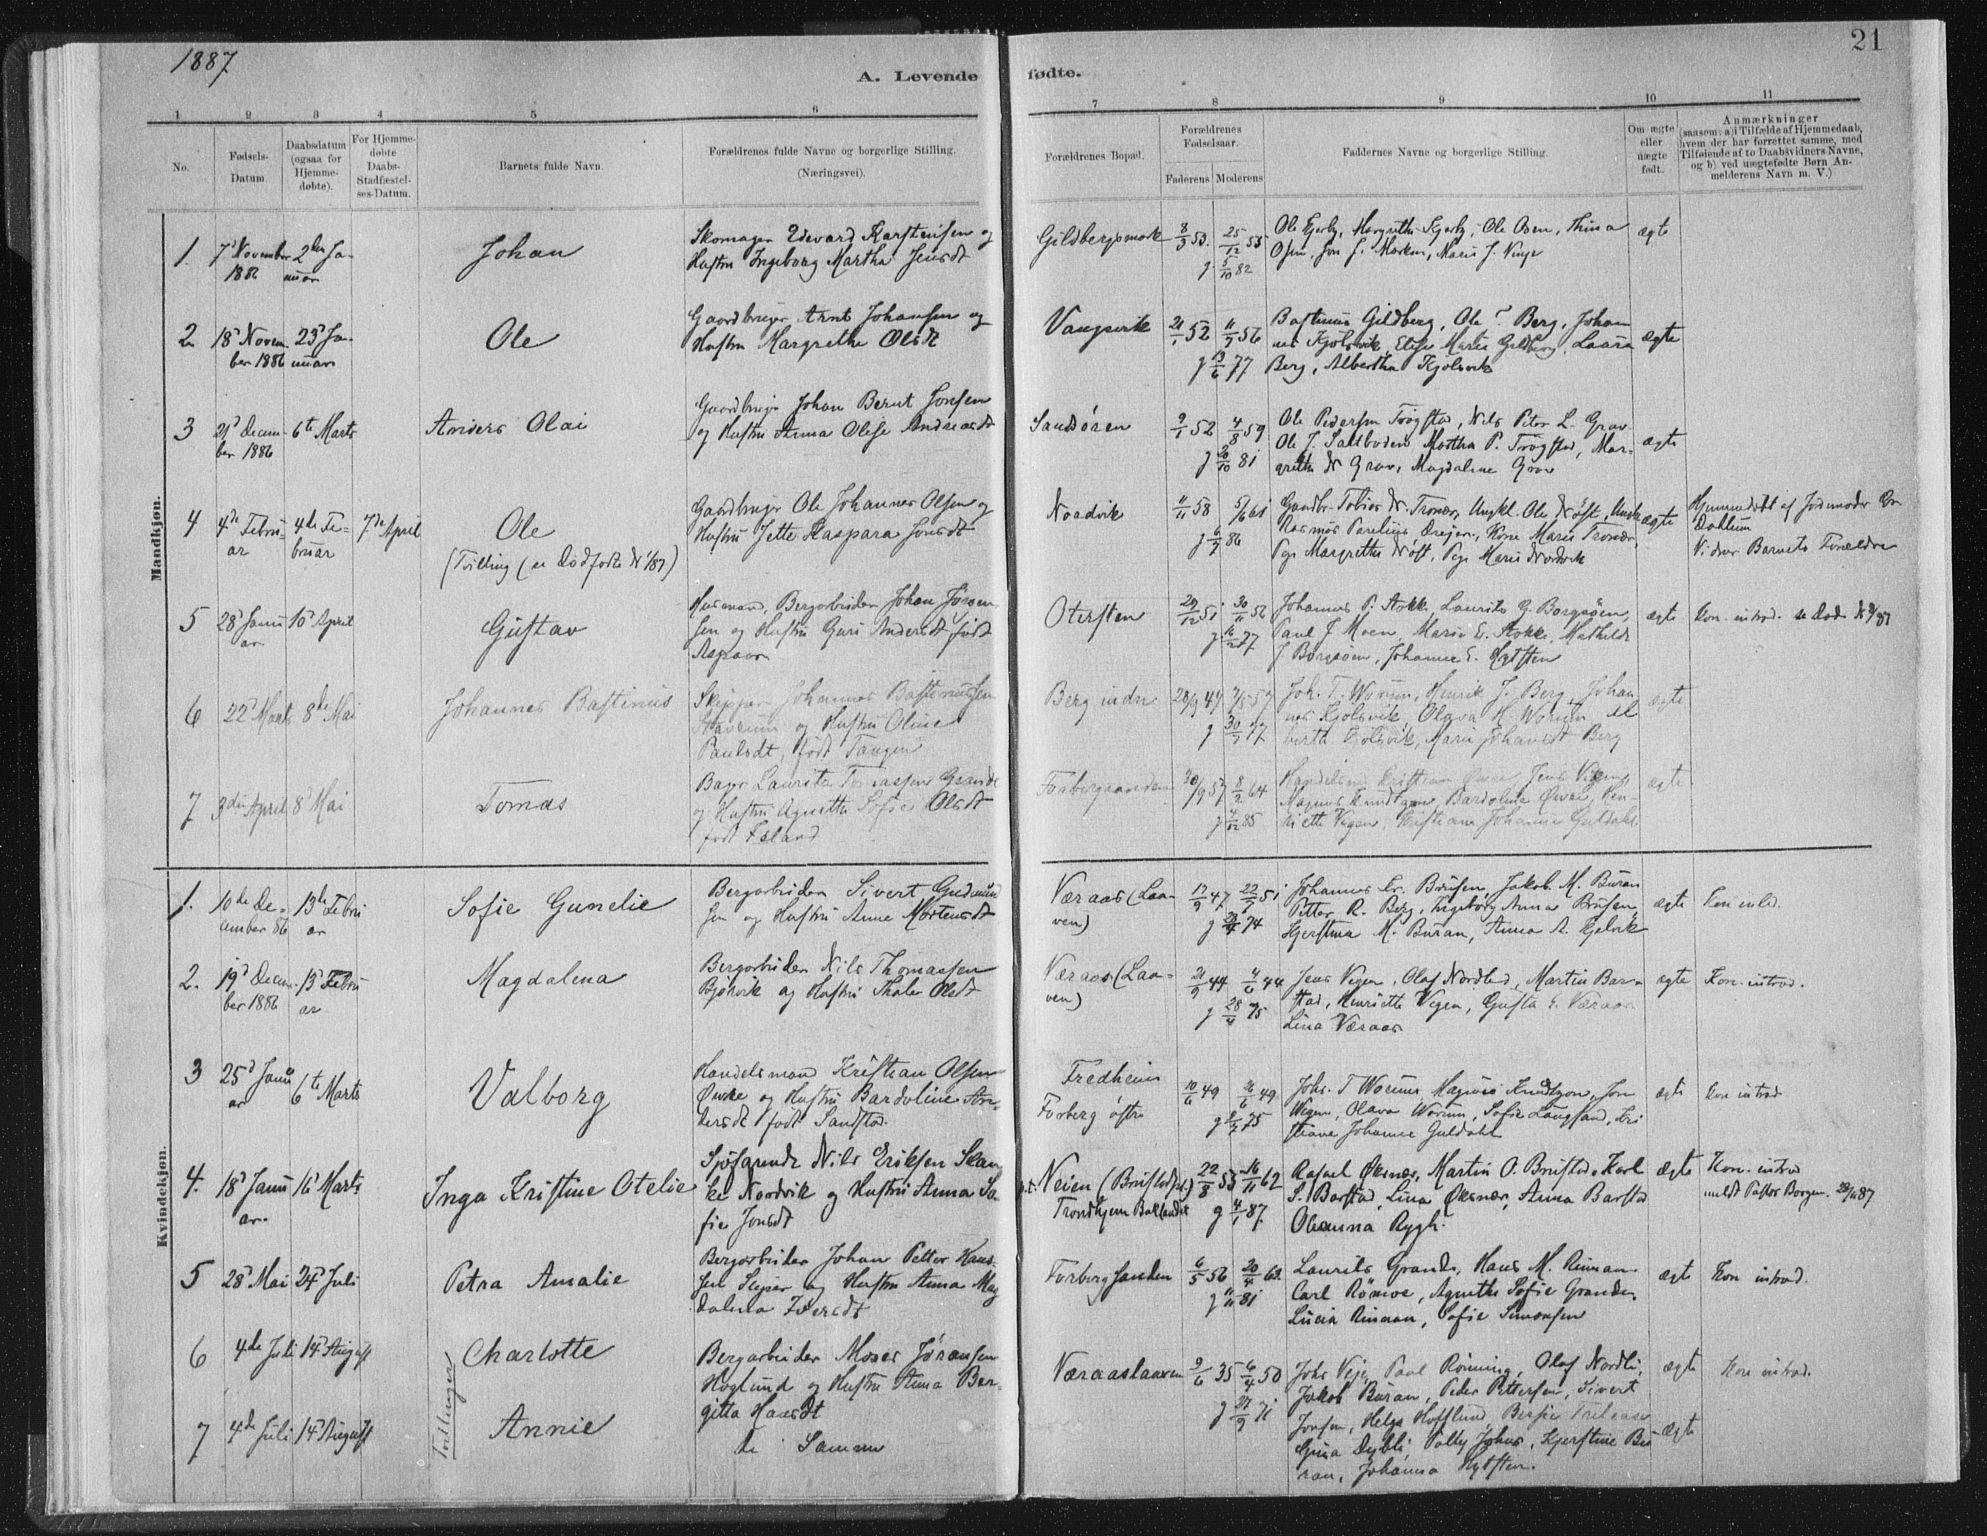 1887
21
A. Levende fødte.
1 2 3 4 5 6 7 8 9 10 11
No.
Fødsels-Datum.
Daabsdatum (ogsaa for Hjemmedøbte).
For Hjemmedøbte Daabs-Stadfæstelses-Datum.
Barnets fulde Navn.
Forældrenes fulde Navne og borgerlige Stilling. (Næringsvei).
Forældrenes Bopæl.
Forældrenes Fødselsaar.
Faderens Moderens
Faddernes Navne og borgerlige Stilling.
Om ægte eller uægte født.
Anmærkninger
(saasom: a) i Tilfælde af Hjemmedaab, hvem der har forrettet samme, med Tilføiende af to Daabsvidners Navne, og b) ved uægtefødte Børn Anmelderens Navn m. V.)
Mandkjøn.
1. 7' November 1886
2den Januar
Johan
Skomager Edevard Karstensen og
Hustru Ingeborg Martha Jensdt
Gildbergsmark
8/3 53. 25/12 55
g 5/10 82
Ole Gjerby, Margrethe Gjerby, Ole Osen, Thina
Osen, Jon J. Morken, Maris J. Vinje
ægte
2. 18' November 1886
23' Januar
Ole
Gaardbruger Arnt Johansen og
Hustru Margrethe Olsdt
Vangsvik
21/1 52 11/7 56
g 13/6 77
Bastinus Gildberg, Ole Berg, Johan
nes Kjølsvik, Elise Marie Gildberg, Laura
Berg, Albertha Kjølsvik
ægte
3 21' December 1886
6te Marts
Anders Olai
Gaardbruger Johan Bernt Jonsen
og Hustru Anna Olise Andersdt
Sandsøren
9/1 52 4/8 59
g 20/10 81
Ole Pedersen Trøgstad, Nils Peter L. Grav
Ole J. Saltboden Martha P. Trøgstad, Mar-
grethe N Grav, Magdalene Grav
ægte
4 4de Februar
4de Februar
7de April
Ole
(Tvilling (se Dødfødte N 1/87)
Gaardbruger Ole Johannes Olsen og
Hustru Jette Kaspara Jonsdt
Noadvik
11/11 58 5/6 61
g 6/7 86
Gaardbr. Tobias N. Tronæs, Ungkl. Ole Nøst, Ungk
Rasmus Paulius Drejer, Kone Marie Tronæs,
Pige Margrethe Nøst, Pige Marie Nordvik
ægte
Hjemmedøbt af Jordmoder
Dahlum
Vidner Barnets Forældre
5 28' Januar
10' April
Gustav
Husmand, Bergarbeider Johan Jørgen-
sen og Hustru Guri Andersdt født
Aspaas
Otersten
29/12 51 30/11 56
g 16/2 77
Johannes P. Stokke, Laurits G. Borgsøen,
Paul J Moen, Marie E. Stokke, Mathilde
J Borgsøen, Johanne E. Nytsten
ægte
Kon. introd. se Døde N 3/87
6 22' Marts
8de Mai
Johannes Bastinus
Skipper Johannes Bastinussen
Stavrum og Hustru Oline
Paulsdt, født Tangen
Berg indre
28/9 47 7/5 57
g 30/7 77
Joh. T. Worum, Henrik J. Berg, Johan
nes Kjølsvik, Olava H. Worum Al
berth Kjølsvik, Marie Johansdt Berg
ægte
7 3die April
8' Mai
Tomas
Bager Laurits Tomassen Grande
og Hustru Agnethe Sofie Olsdt
født Island
Forbergsanden
30/9 57 8/2 64
g 4/12 85
Handelsmd Kristian Øvre, Jens Vegen,
Magnus Knudtzon, Bardoline Øvre, Hen-
riette Vegen, Kristiane Johanne Guldahl
ægte
Kvindekjøn.
1. 10de December 86
13de Februar
Sofie Gunelie
Bergarbeider Sivert Gudmund
sen og Hustru Anne Mortensdt
Væraas (Laa-
ven)
12/9 47 22/7 51
g 24/4 74
Johannes Er. Brusen, Jakob M. Buran
Petter R. Berg, Ingeborg Anna Brusen,
Kjerstina M. Buran, Anna A. Kjelvik
ægte
Kon. intd.
2. 19' December 1886
13' Februar
Magdalena
Bergarbeider Nils Thomassen
Bjørvik og Hustru Thale Olsdt
Væraas (Laa-
ven)
21/9 44 4/6 44
g 28/4 75
Jens Vegen, Olaf Nordlid, Martin Bar-
stad, Henriette Vegen, Gusta E. Væraas
Lina Væraas
ægte
Kon. introd.
3 25' Januar
6te Marts
Valborg
Handelsmand Kristian Olsen
Øvre og Hustru Bardoline An-
dersdt født Sandstad
Fredheim
Forberg østre
10/6 49 16/6 49
g 2/7 75
Johs. T Worum, Magnus Knudtzon, Jens
Vegen, Olava Worum, Sofie Langsand, Kri
stiane Johanne Guldahl
ægte
Kon introd
4. 18' Januar.
16' Marts
Inga Kristine Otelie
Sjøfarende Nils Eriksen Skan
ke Nordvik og Hustru Anna So
fie Jonsdt
Neien (Brustedpl.)
Trondhjem Baklandet
22/8 53 16/11 62
g 4/1 87
Rafael Øksnes, Martin O. Brustad, Karl
S. Barstad, Lina Øksnes, Anna Barstad
Oleanna Rygh.
ægte
Kon. introd
meldt Pastor Borgen 28/11 87
5 28' Mai
24' Juli
Petra Amalie
Bergarbeider Johan Petter Hans-
sen og Hustru Anna Mag
dalena Iversdt
Forbergsanden
6/5 56 20/4 63.
g 11/11 81
Laurits Grande, Hans M. Rinnan
Carl Römoe, Agnethe Sofie Grande,
Lucia Rinnan, Sofie Simonsen
ægte
Kon introd.
6 4de Juli
14' August
Tvillinger
Charlotte
Bergarbeider Moses Jöransen
Hoglund og Hustru Anna Ber-
gitta Hansdt
Væraaslaaven
9/6 35 6/4 50
g 27/9 71
Johs Veje, Paul Rönning, Olaf Nordli,
Jakob Buran, Peder Pettersen, Sivert
Jonsen, Helga Hofflund,
Gina Dybli, Johns, Kjerstine Bu
ran, Johanna Nytsten.
ægte
Kon introd.
7 4de Juli
14' August
Annie
de Samme
ægte